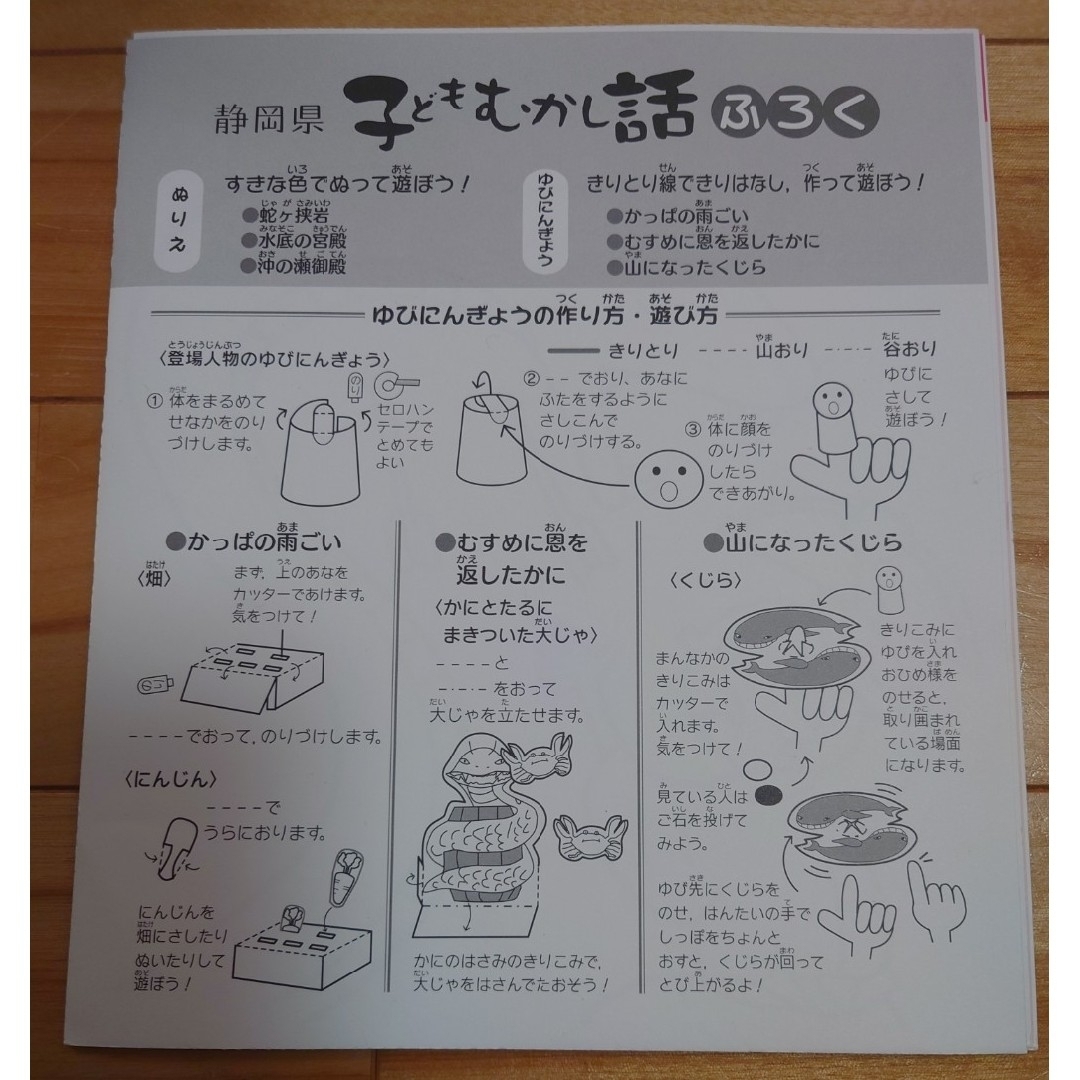 静岡県 子どもむかし話 ふろく
ぬりえ
すきな色でぬって遊ぼう！
●蛇ヶ挟岩
●水底の宮殿
●沖の瀬御殿
ゆびにんぎょう
きりとり線できりはなし，作って遊ぼう！
●かっぱの雨ごい
●むすめに恩を返したかに
●山になったくじら
ゆびにんぎょうの作り方・遊び方
〈登場人物のゆびにんぎょう〉
きりとり ---- 山おり -・-・- 谷おり
① 体をまるめて
せなかをのり
づけします。
のり
セロハン
テープで
とめても
よい
② -- でおり、あなに
ふたをするように
さしこんで
のりづけする。
③ 体に顔を
のりづけ
したら
できあがり。
ゆびに
さして
遊ぼう！
●かっぱの雨ごい
〈畑〉
まず，上のあなを
カッターであけます。
気をつけて！
のり
----でおって，のりづけします。
〈にんじん〉
----で
うらにおります。
にんじんを
畑にさしたり
ぬいたりして
遊ぼう！
●むすめに恩を
返したかに
〈かにとたるに
まきついた大じゃ〉
----と
-・-・-をおって
大じゃを立たせます。
かにのはさみのきりこみで，
大じゃをはさんでたおそう！
●山になったくじら
〈くじら〉
まんなかの
きりこみは
カッターで
入れます。
気をつけて！
きりこみに
ゆびを入れ
おひめ様を
のせると，
取り囲まれ
ている場面
になります。
見ている人は
ご石を投げて
みよう。
ゆび先にくじらを
のせ，はんたいの手で
しっぽをちょんと
おすと，くじらが回って
とび上がるよ！